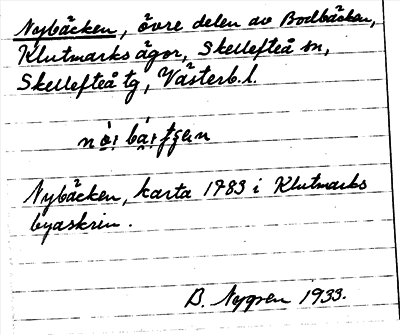 Nybäcken, övre delen av Bodbäcken,
Klutmarks ägor, Skellefteå sn,
Skellefteå tg, Västerb. l.
Nybäcken, karta 1783 i Klutmarks
byaskrin.
B. Nygren 1933.